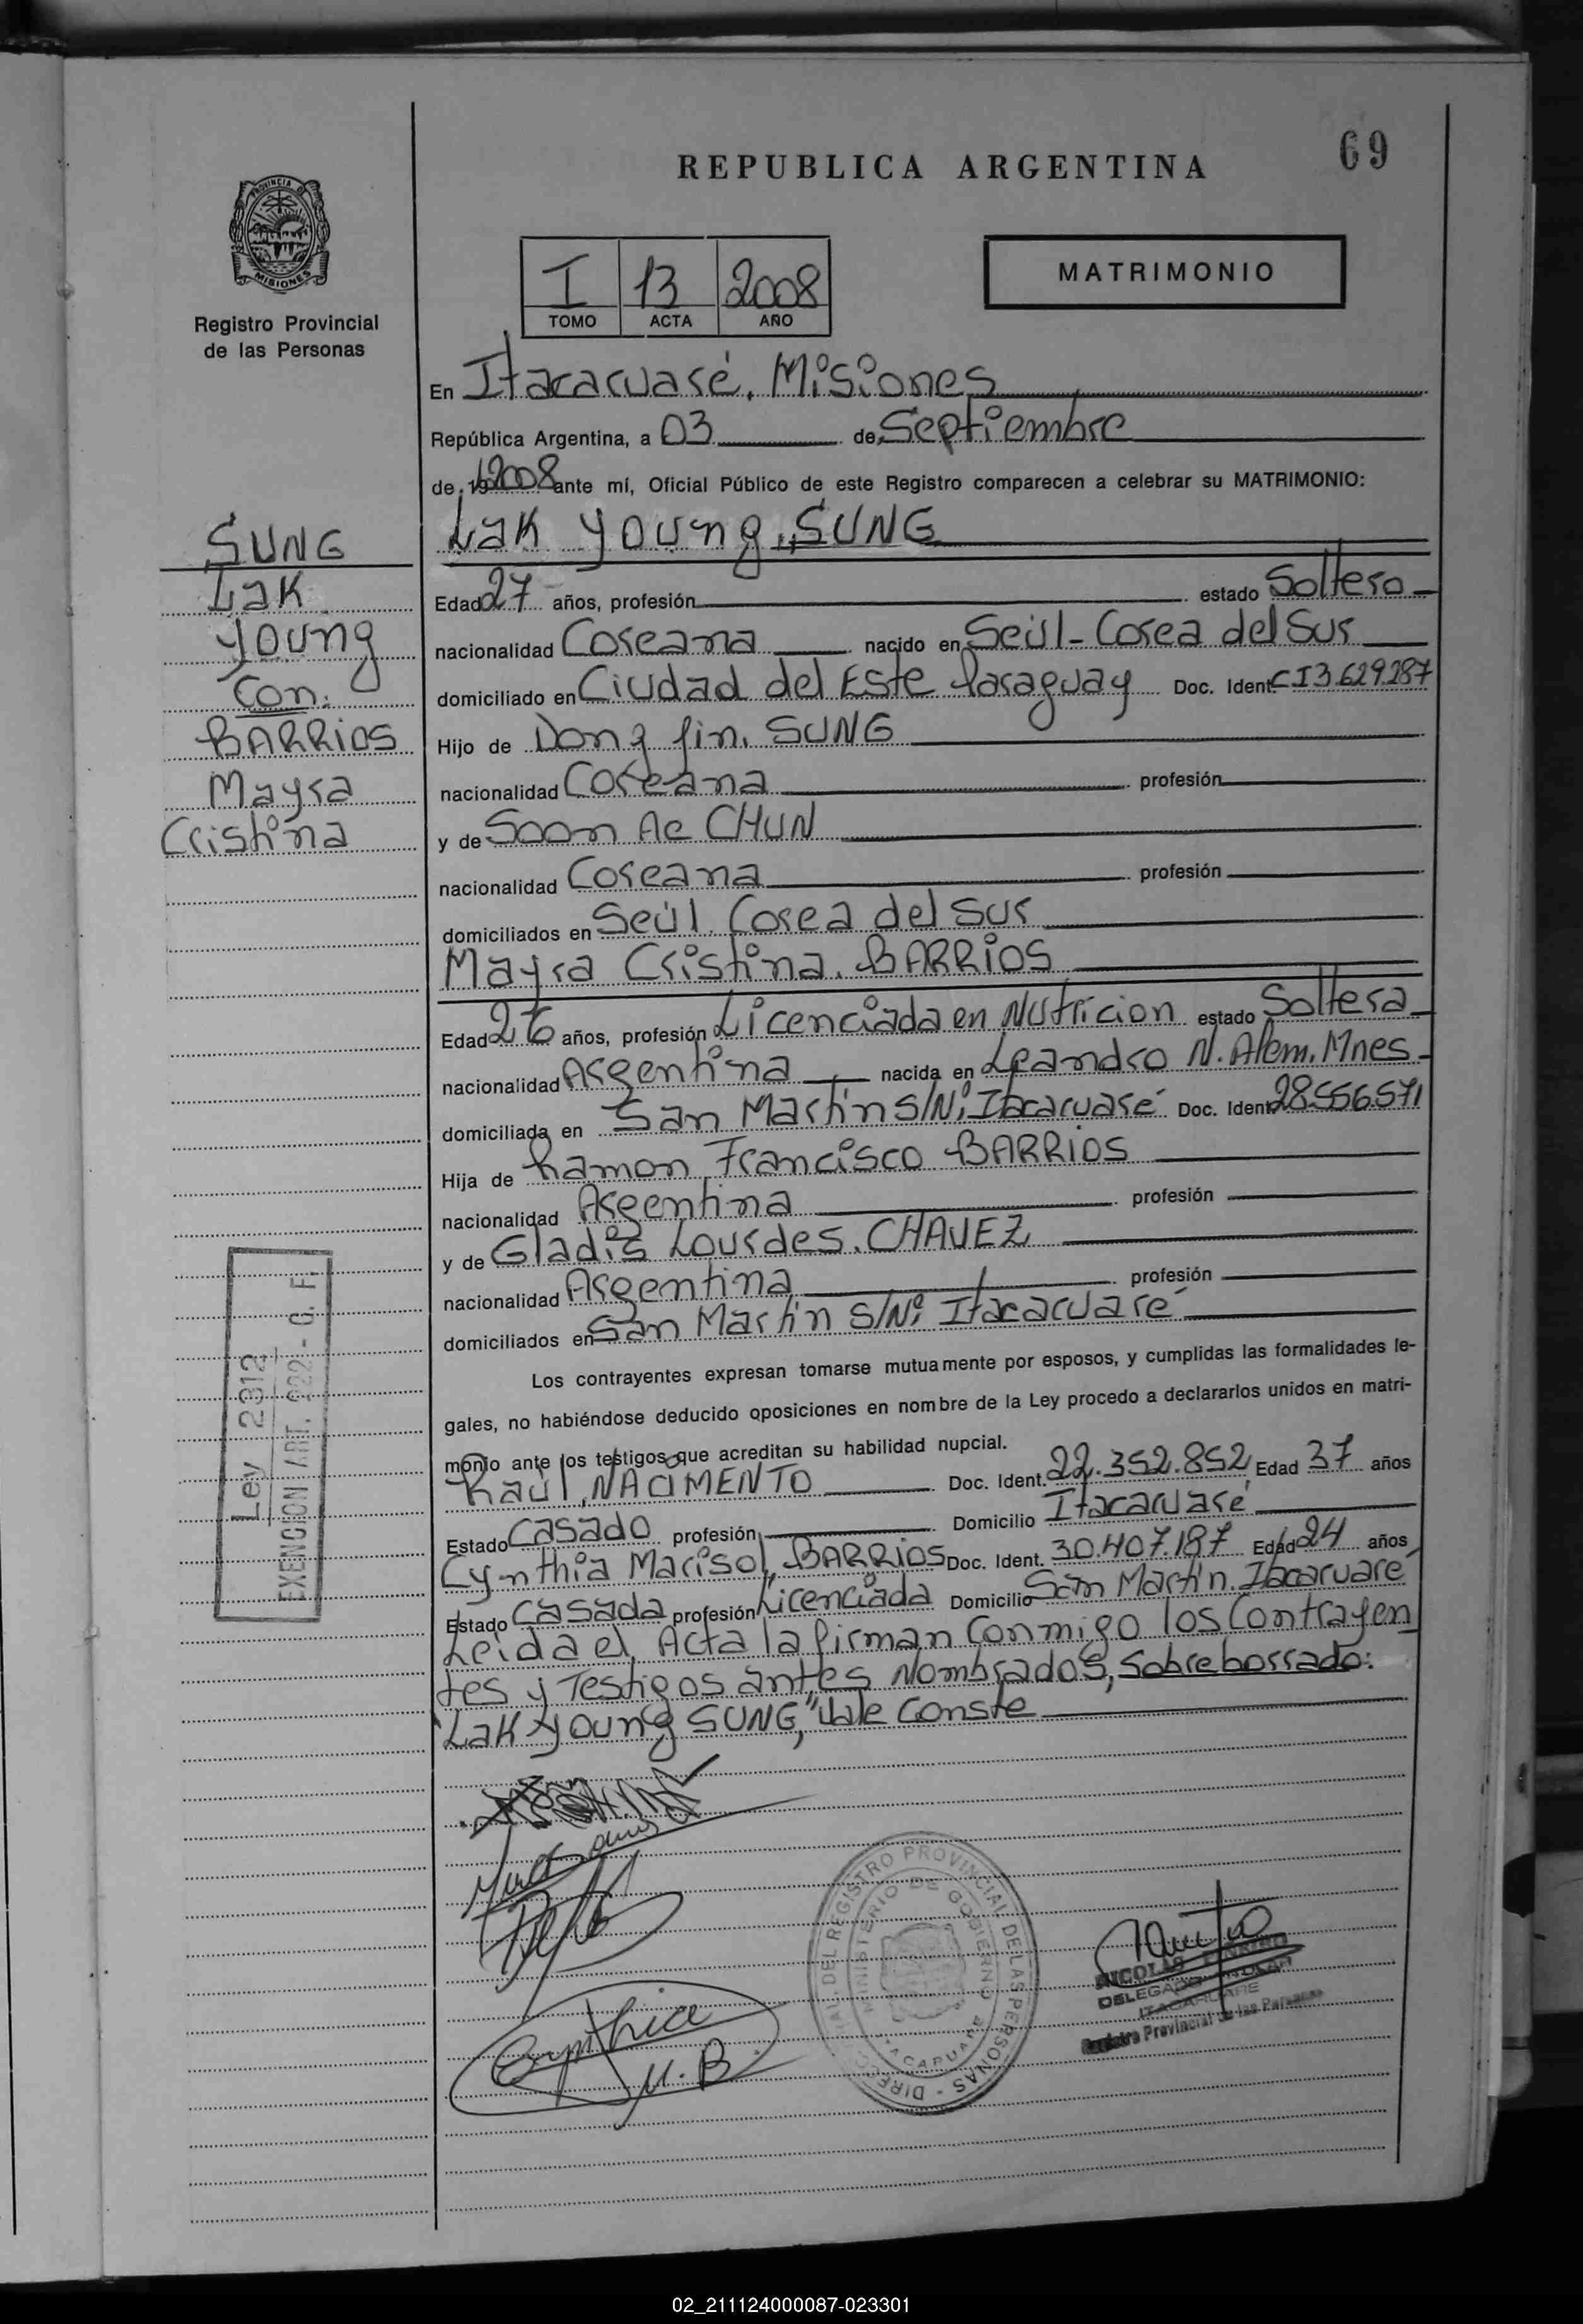 69
REPUBLICA ARGENTINA
PROVINCIA D
MISIONES
Registro Provincial
de las Personas
I 13 2008
TOMO ACTA AÑO
MATRIMONIO
En Itacaruaré, Misiones
República Argentina, a 03 de Septiembre
de 19 2008 ante mí, Oficial Público de este Registro comparecen a celebrar su MATRIMONIO:
SUNG
Lak
Young
Con.
BARRIOS
Mayra
Cristina
Lak Young, SUNG
Edad 27 años, profesión estado Soltero
nacionalidad Coreana nacido en Seúl - Corea del Sur
domiciliado en Ciudad del Este Paraguay Doc. Ident. CI 3.629.287
Hijo de Dong Jin, SUNG
nacionalidad Coreana profesión
y de Soon Ae CHUN
nacionalidad Coreana profesión
domiciliados en Seúl, Corea del Sur
Mayra Cristina, BARRIOS
Edad 26 años, profesión Licenciada en Nutricion estado Soltera
nacionalidad Argentina nacida en Leandro N. Alem, Mnes
domiciliada en San Martín S/Nº, Itacaruaré Doc. Ident. 28.556.571
Hija de Ramon Francisco BARRIOS
nacionalidad Argentina profesión
y de Gladis Lourdes, CHAVEZ
nacionalidad Argentina profesión
domiciliados en San Martín S/Nº, Itacaruaré
Los contrayentes expresan tomarse mutuamente por esposos, y cumplidas las formalidades le-
gales, no habiéndose deducido oposiciones en nombre de la Ley procedo a declararlos unidos en matri-
monio ante los testigos que acreditan su habilidad nupcial.
Raúl, NACIMENTO Doc. Ident. 22.352.852 Edad 37 años
Estado Casado profesión Domicilio Itacaruaré
Cynthia Marisol, BARRIOS Doc. Ident. 30.407.187 Edad 24 años
Estado Casada profesión Licenciada Domicilio San Martín, Itacaruaré
Leida el Acta la firman Conmigo los Contrayen
tes y Testigos antes Nombrados, Sobreborrado:
"Lak Young SUNG," Vale Conste
Ley 2312
EXENCION ART. 222 - G. F.
Cynthia
M. B
DIREC REGISTRO PROVINCIAL DE LAS PERSONAS
MINISTERIO DE GOBIERNO
NICOLAS
DELEGADO
ITACARUARE
Registro Provincial de las Personas
02_211124000087-023301